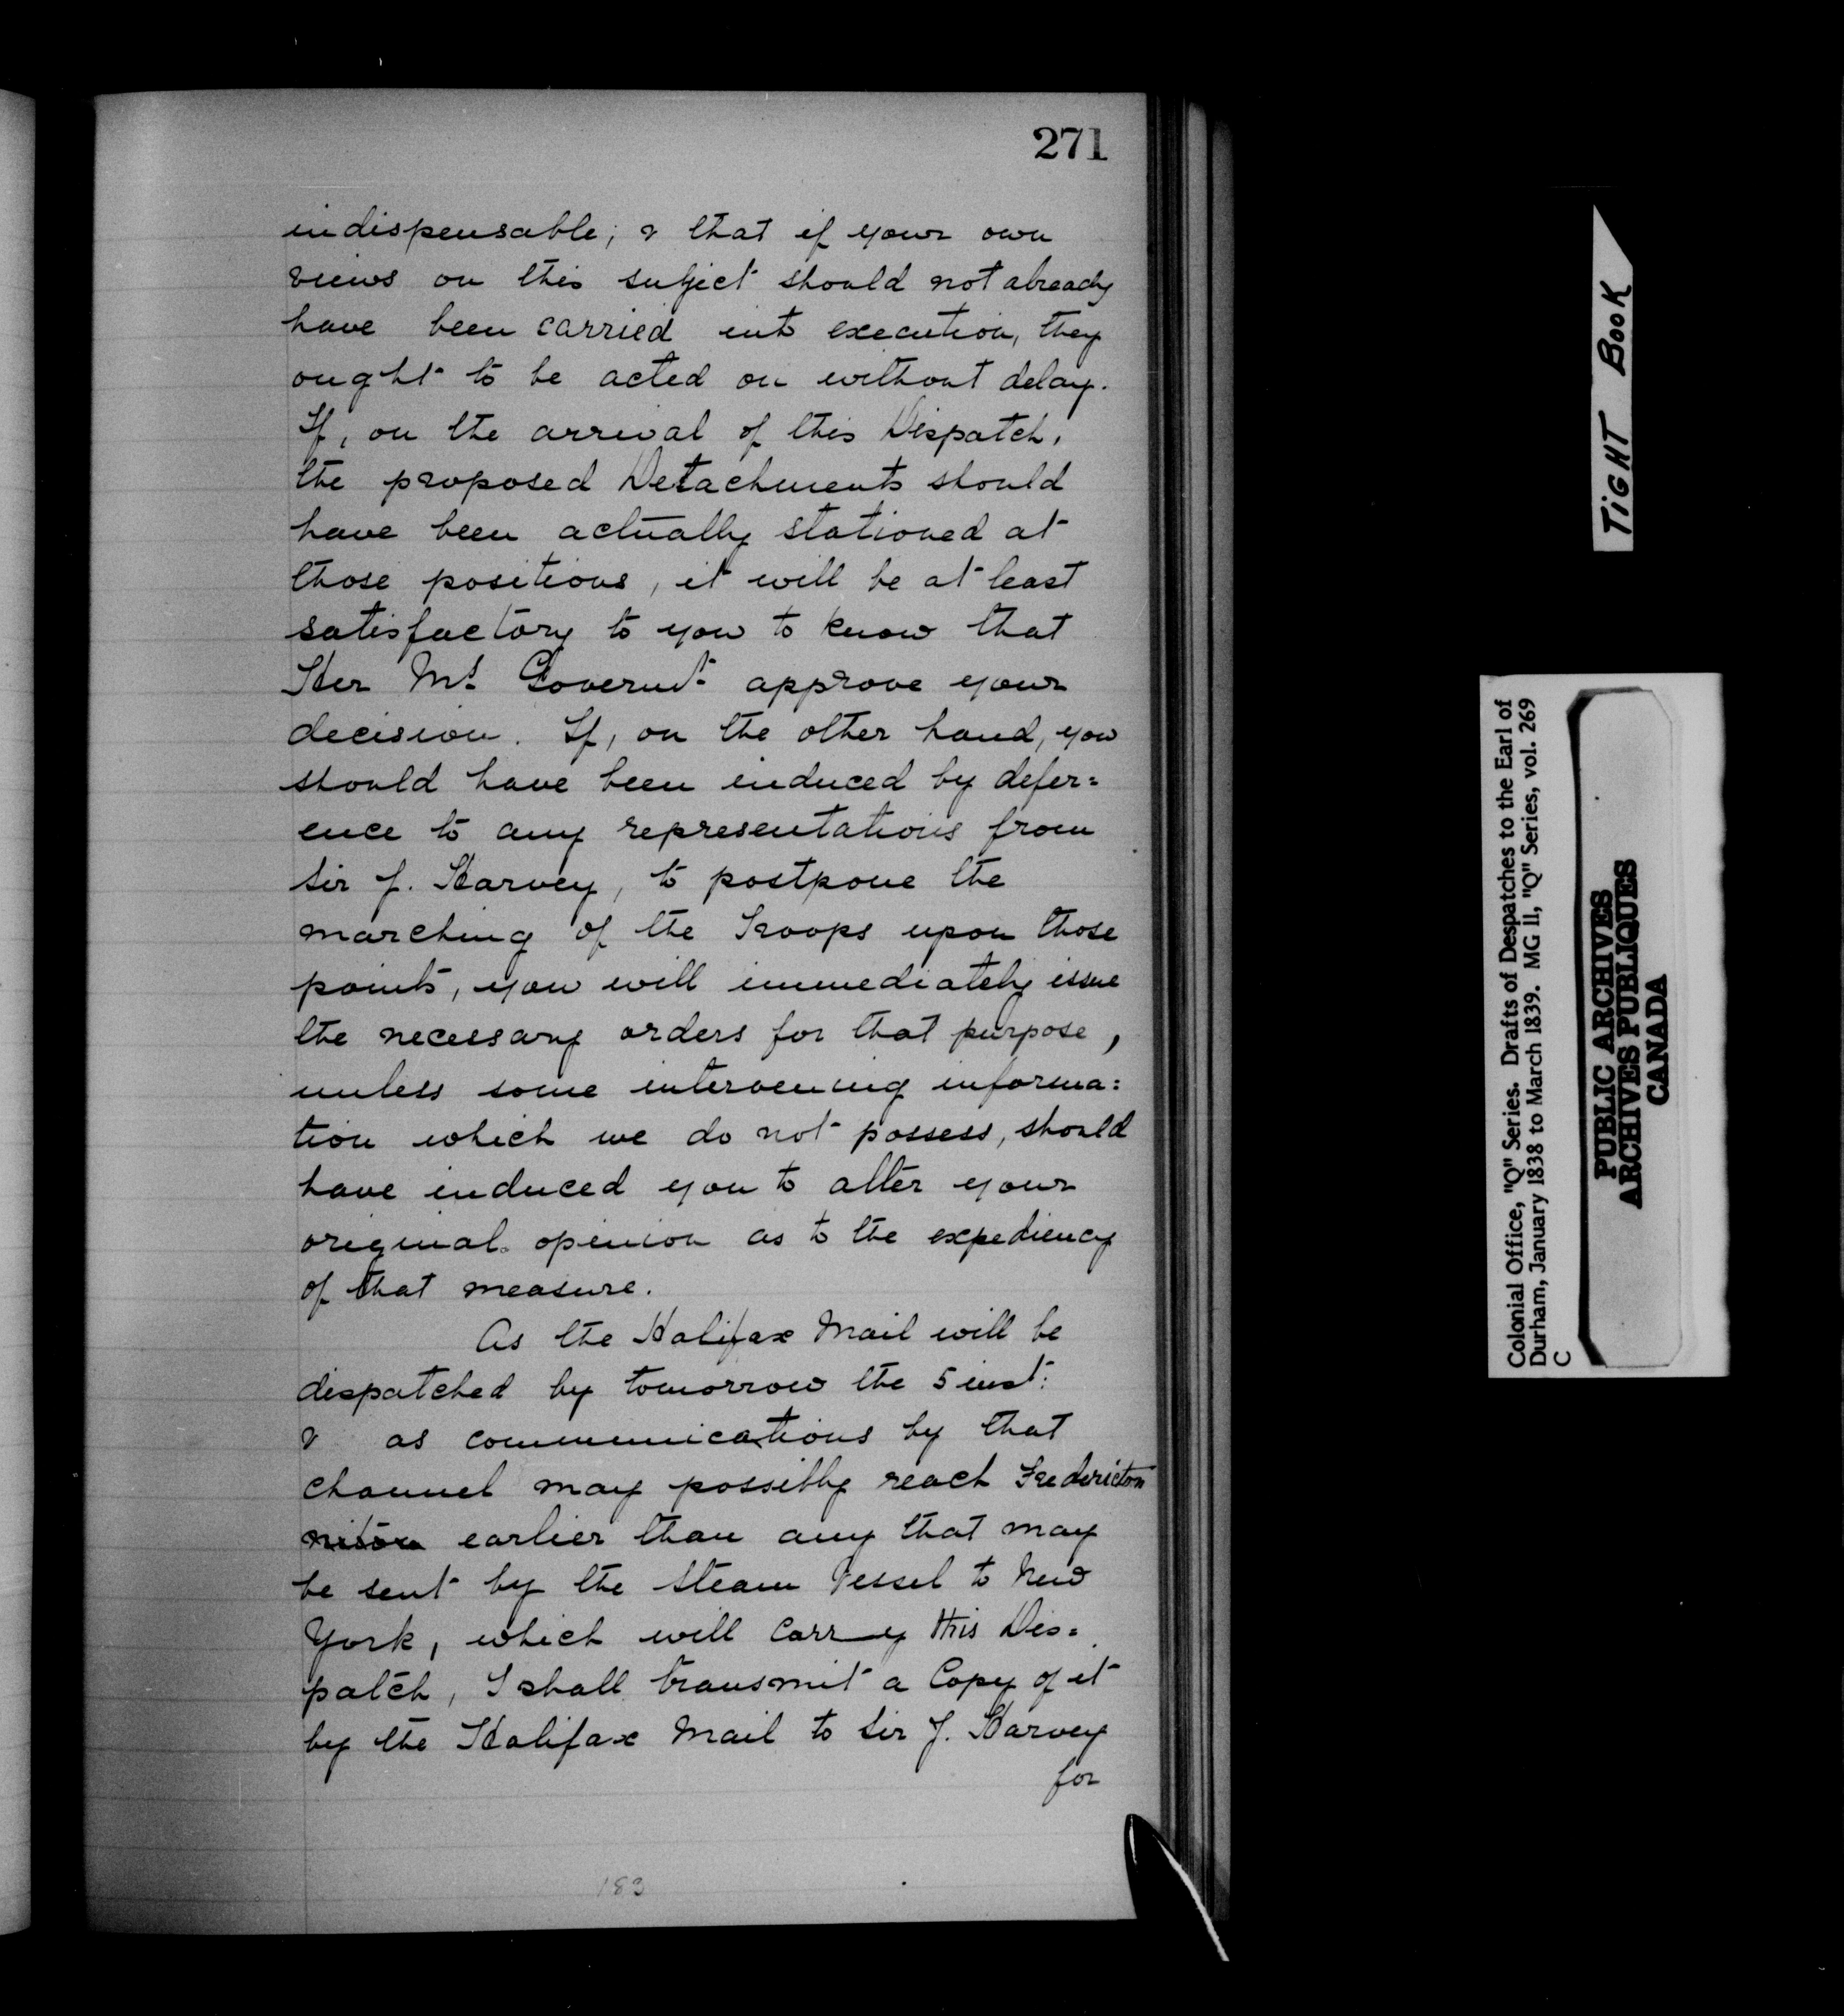 271
indispensable; & that if your own
views on this subject should not already
have been carried into execution, they
ought to be acted on without delay.
If, on the arrival of this Dispatch,
the proposed Detachments should
have been actually stationed at
those positions, it will be at least
satisfactory to you to know that
Her Ms. Governt. approve your
decision. If, on the other hand, you
should have been induced by defer=
ence to any representations from
Sir J. Harvey, to postpone the
marching of the Troops upon those
points, you will immediately issue
the necessary orders for that purpose,
unless some intervening informa:
tion which we do not possess, should
have induced you to alter your
original opinion as to the expediency
of that measure.
As the Halifax Mail will be
dispatched by tomorrow the 5 inst:
& as communications by that
channel may possibly reach Fredericton
earlier than any that may
be sent by the Steam Vessel to New
York, which will carry this Dis=
patch, I shall transmit a Copy of it
by the Halifax Mail to Sir J. Harvey
for
183
TIGHT BOOK
Colonial Office, "Q" Series. Drafts of Despatches to the Earl of
Durham, January 1838 to March 1839. MG 11, "Q" Series, vol. 269
C
PUBLIC ARCHIVES
ARCHIVES PUBLIQUES
CANADA